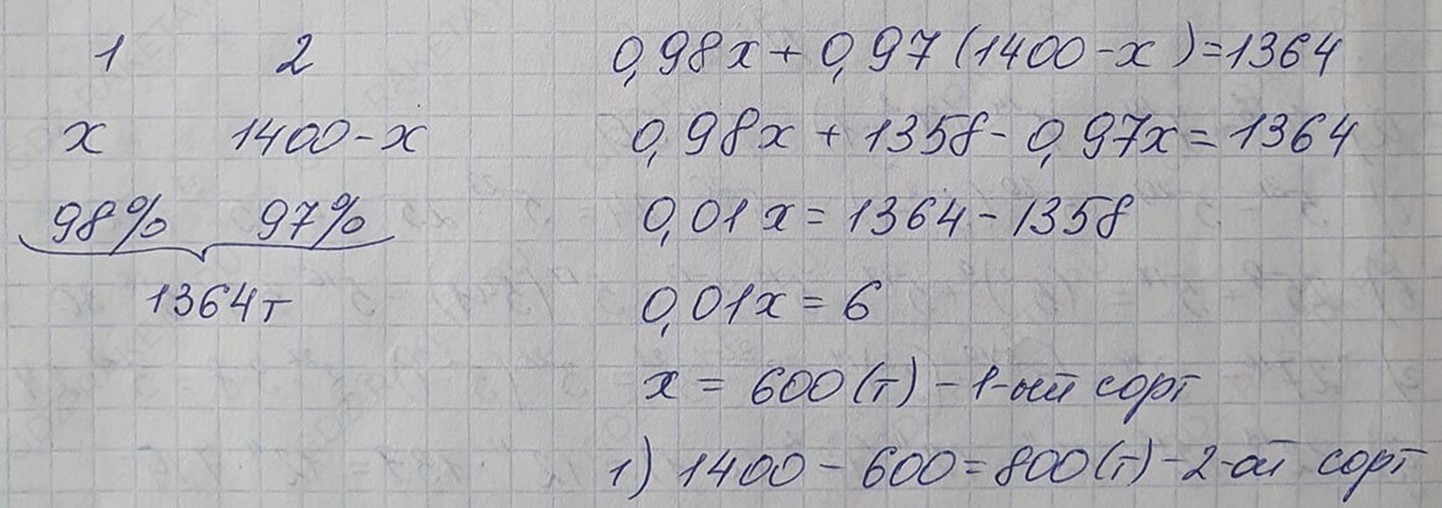 1 2
x 1400-x
98% 97%
1364т
0,98x + 0,97(1400-x)=1364
0,98x + 1358 - 0,97x = 1364
0,01x = 1364 - 1358
0,01x = 6
x = 600(т) - 1-ый сорт
1) 1400 - 600 = 800(т) - 2-ой сорт